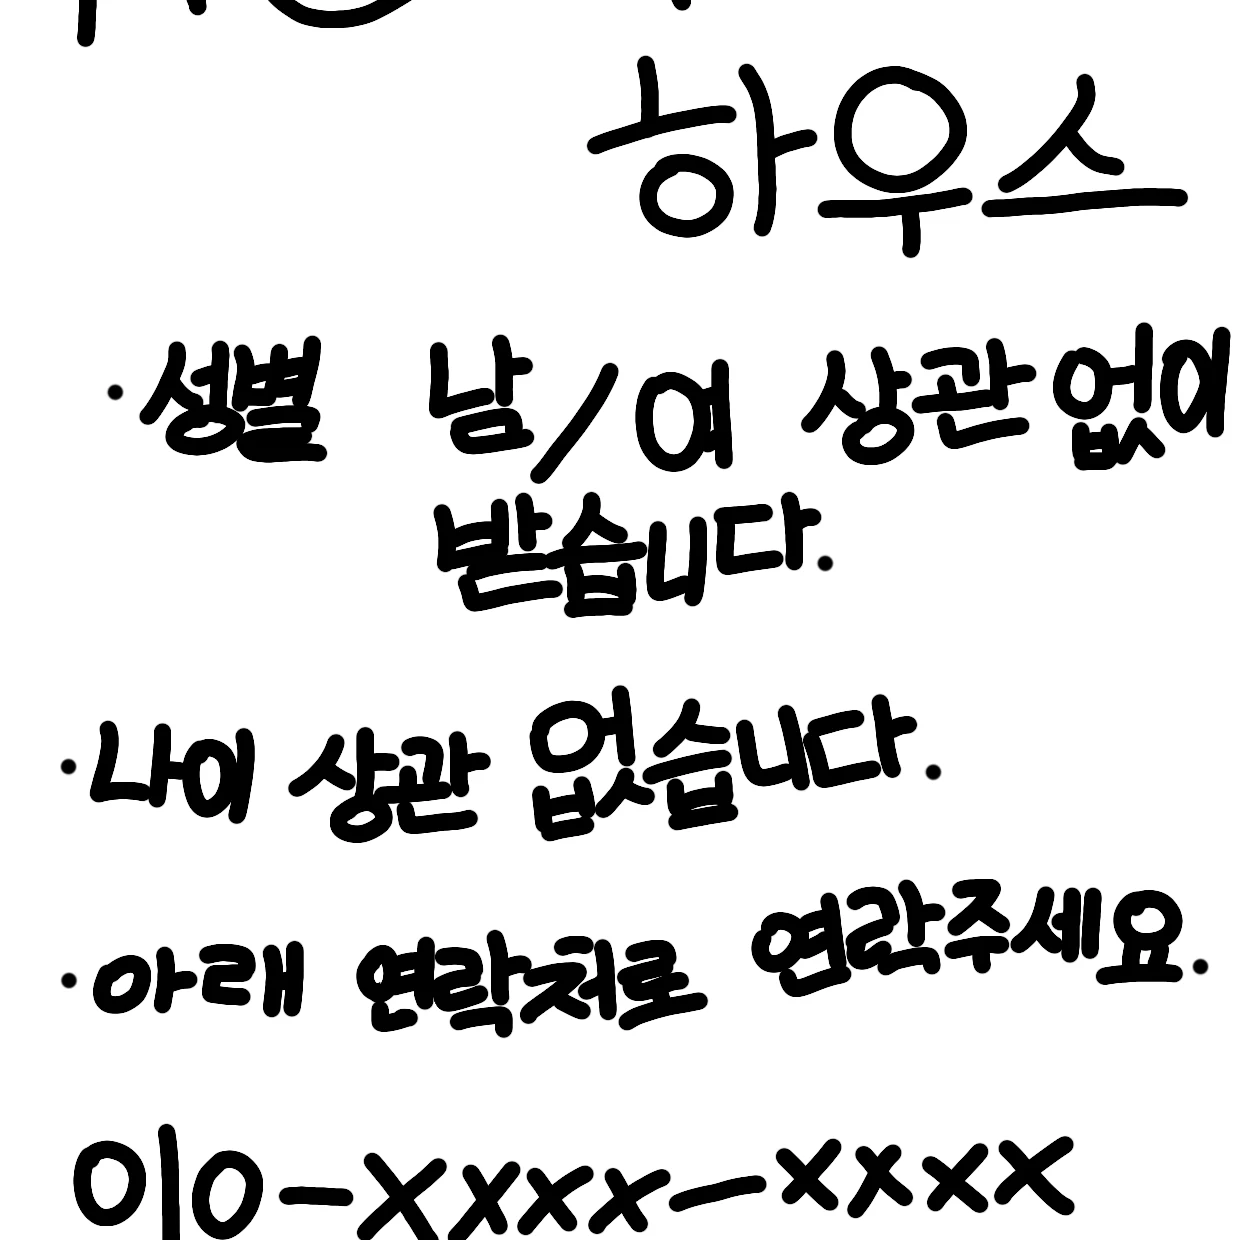 하우스
· 성별 남/여 상관 없이
받습니다.
· 나이 상관 없습니다.
· 아래 연락처로 연락주세요.
010-xxxx-xxxx